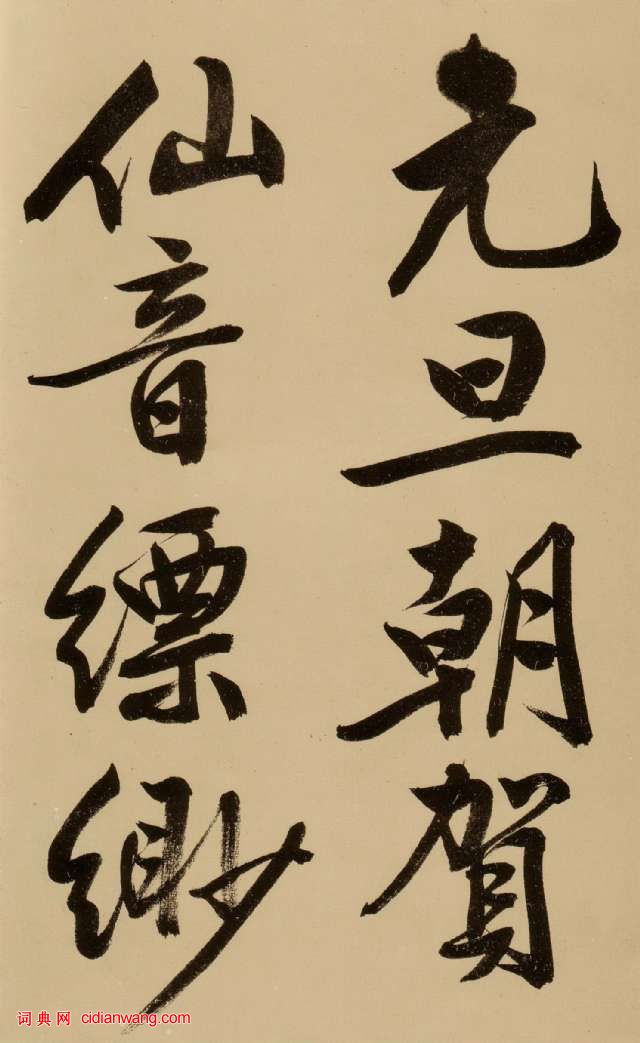 元旦朝賀
仙音縹緲
词典网 cidianwang.com